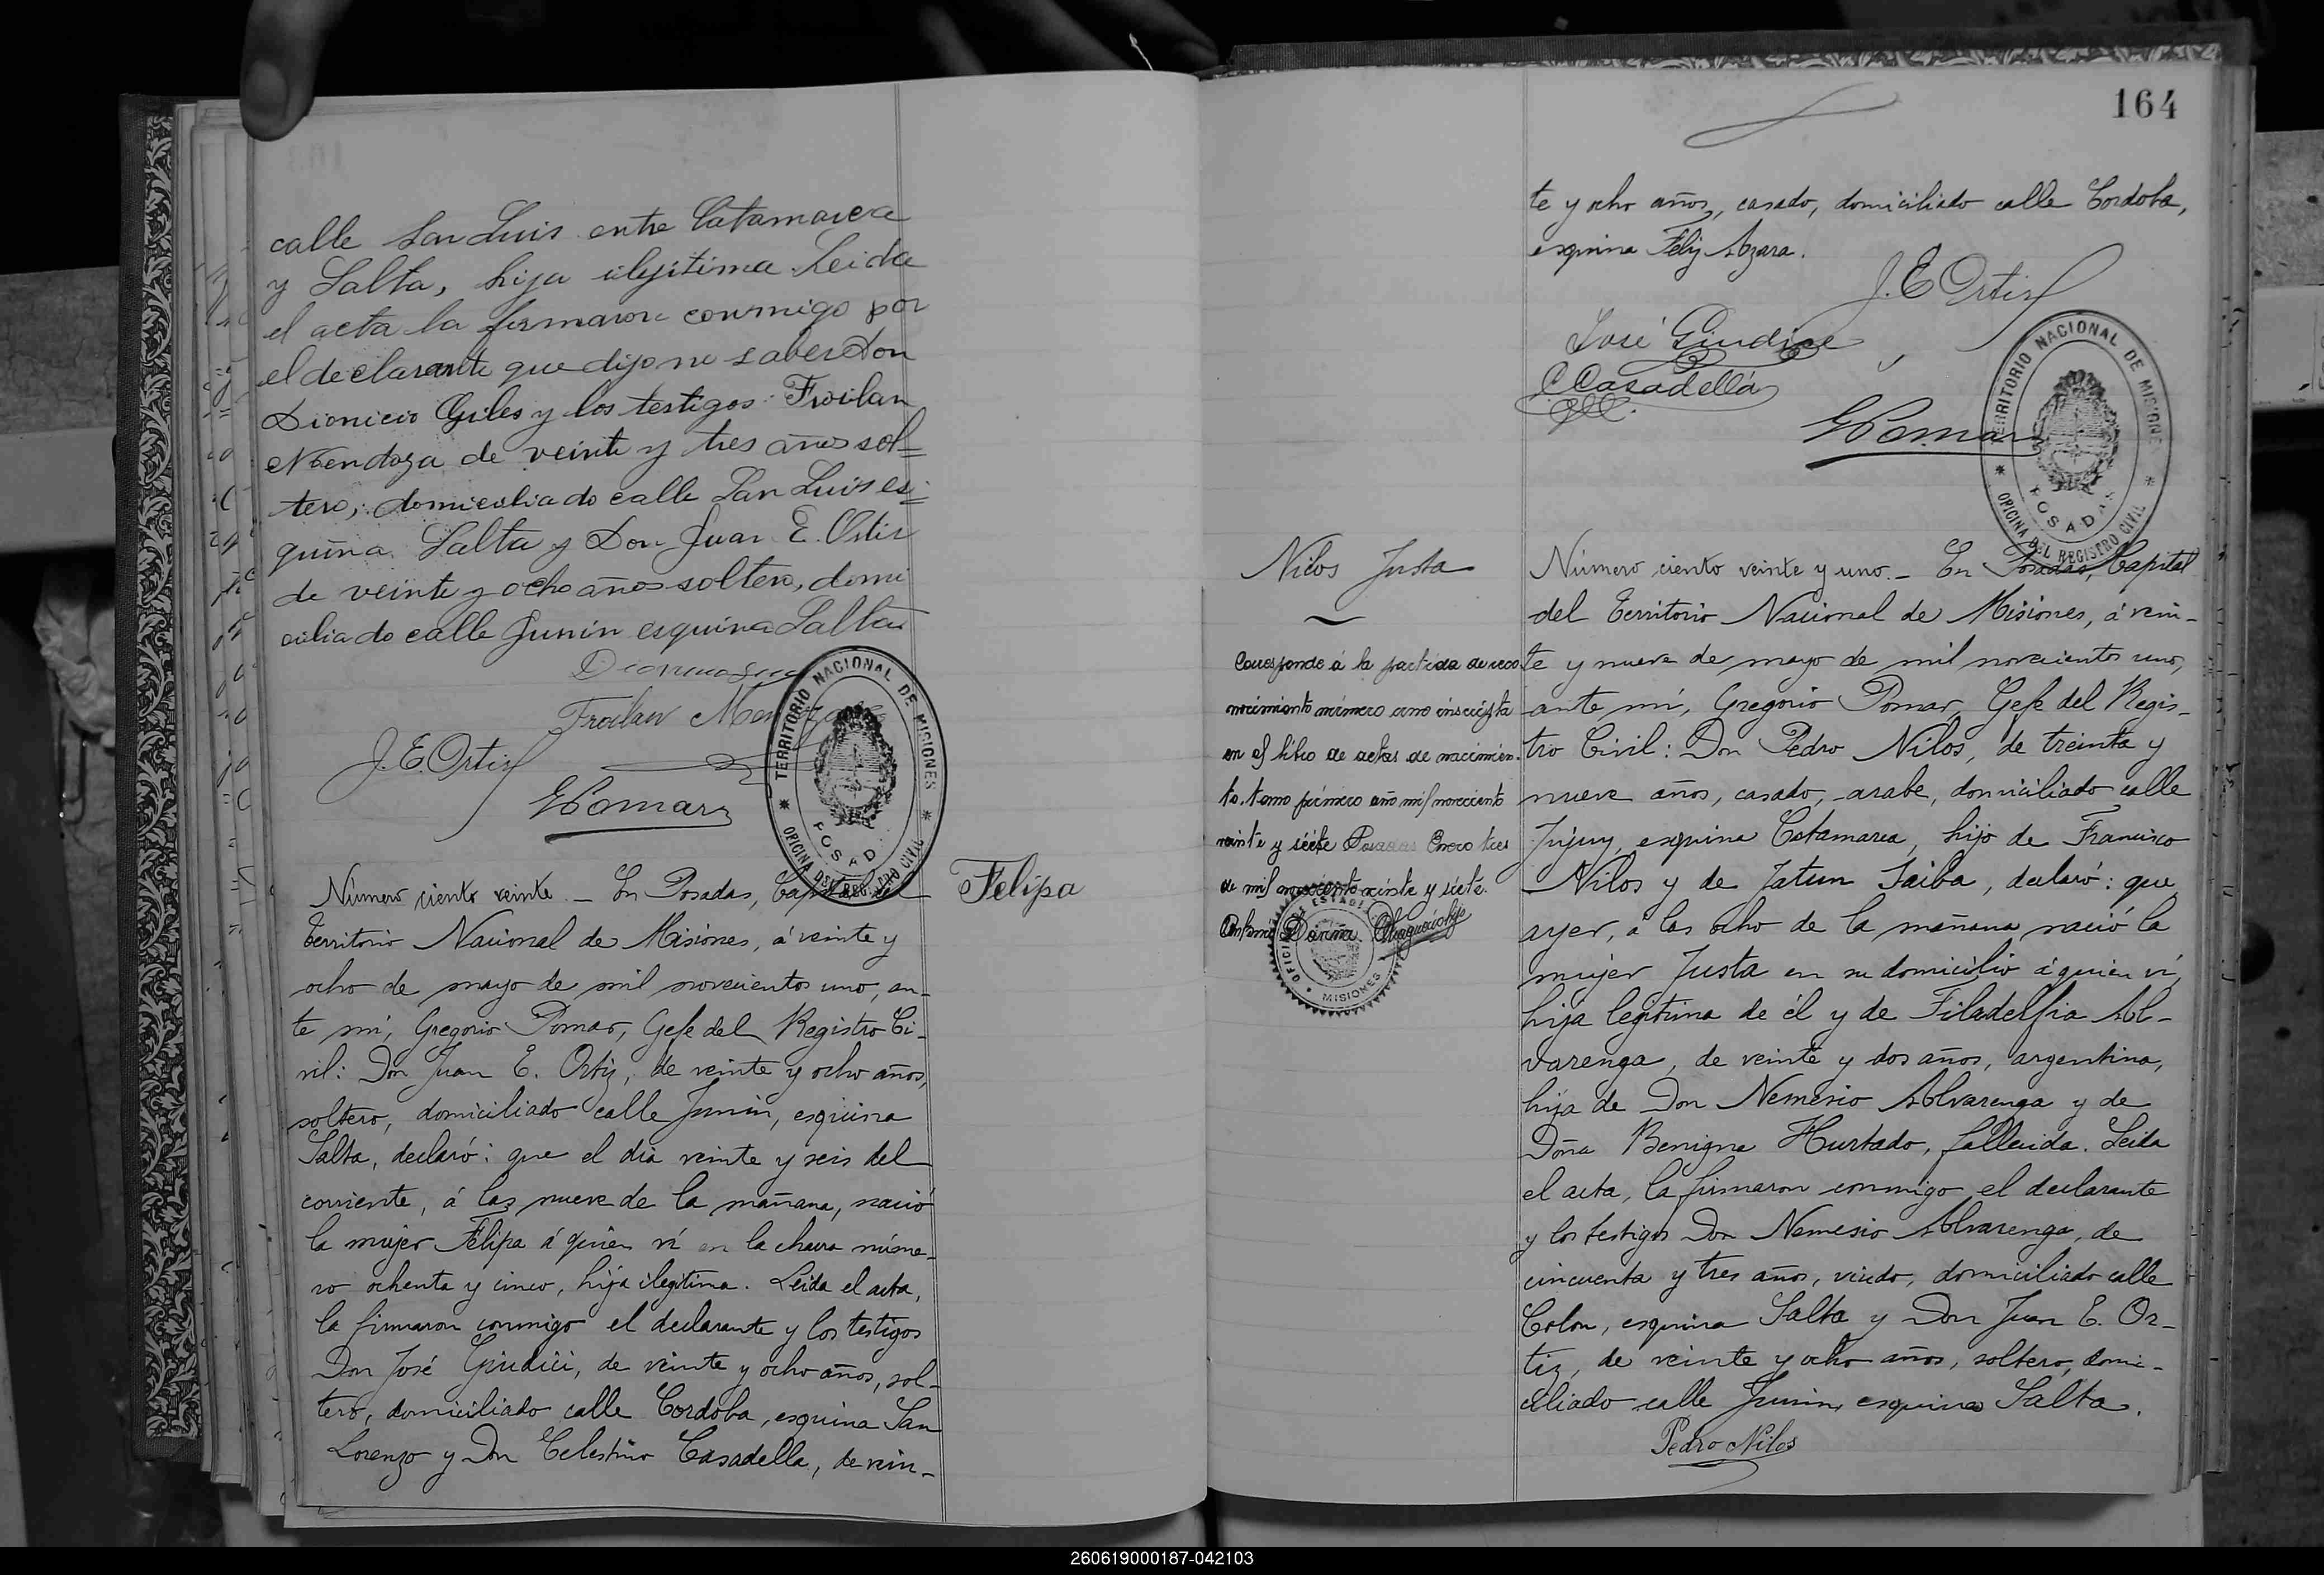 calle San Luis entre Catamarca
y Salta, hija ilejitima. Leida
el acta la firmaron conmigo por
el declarante que dijo no saber Don
Dionicio Giles y los testigos: Froilan
Mendoza de veinte y tres años sol=
tero, domiciliado calle San Luis es=
quina Salta y Don Juan E. Ortiz
de veinte y ocho años soltero, domi
ciliado calle Junin esquina Salta
Froilan
J. E. Ortiz
GPomar
TERRITORIO NACIONAL DE MISIONES
POSADAS
OFICINA DEL REGISTRO CIVIL
Número ciento veinte. _ En Posadas, Capital del
Territorio Nacional de Misiones, á veinte y
ocho de mayo de mil novecientos uno, an-
te mí, Gregorio Pomar, Gefe del Registro Ci-
vil: Don Juan E. Ortiz, de veinte y ocho años,
soltero, domiciliado calle Junin, esquina
Salta, declaró: que el dia veinte y seis del
corriente, á las nueve de la mañana, nació
la mujer Felipa á quien ví en la chacra núme-
ro ochenta y cinco, hija ilegitima. Leida el acta,
la firmaron conmigo el declarante y los testigos
Don José Giudici, de veinte y ocho años, sol-
tero, domiciliado calle Cordoba, esquina San
Lorenzo y Don Celestino Casadella, de vein-
Felipa
164
te y ocho años, casado, domiciliado calle Cordoba,
esquina Feliz Azara.
J. E. Ortiz
José Giudice
C Casadellá
GPomar
TERRITORIO NACIONAL DE MISIONES
POSADAS
OFICINA DEL REGISTRO CIVIL
Nilos Justa
Corresponde á la partida de reco
nocimiento número uno inscripta
en el libro de actas de nacimien-
to, tomo primero año mil novecientos
veinte y siete Posadas Enero tres
de mil novecientos veinte y siete.
MISIONES
Número ciento veinte y uno. _ En Posadas, Capital
del Territorio Nacional de Misiones, á vein-
te y nueve de mayo de mil novecientos uno,
ante mí, Gregorio Pomar, Gefe del Regis-
tro Civil: Don Pedro Nilos, de treinta y
nueve años, casado, arabe, domiciliado calle
Jujuy, esquina Catamarca, hijo de Francisco
Nilos y de Jatun Saiba, declaró: que
ayer, á las ocho de la mañana nació la
mujer Justa en su domicilio á quien ví,
hija legitima de él y de Filadelfia Al-
varenga, de veinte y dos años, argentina,
hija de Don Nemesio Alvarenga y de
Doña Benigna Hurtado, fallecida. Leida
el acta, la firmaron conmigo el declarante
y los testigos Don Nemesio Alvarenga, de
cincuenta y tres años, viudo, domiciliado calle
Colon, esquina Salta y Don Juan E. Or-
tiz, de veinte y ocho años, soltero, domi-
ciliado calle Junin, esquina Salta.
Pedro Nilos
260619000187-042103